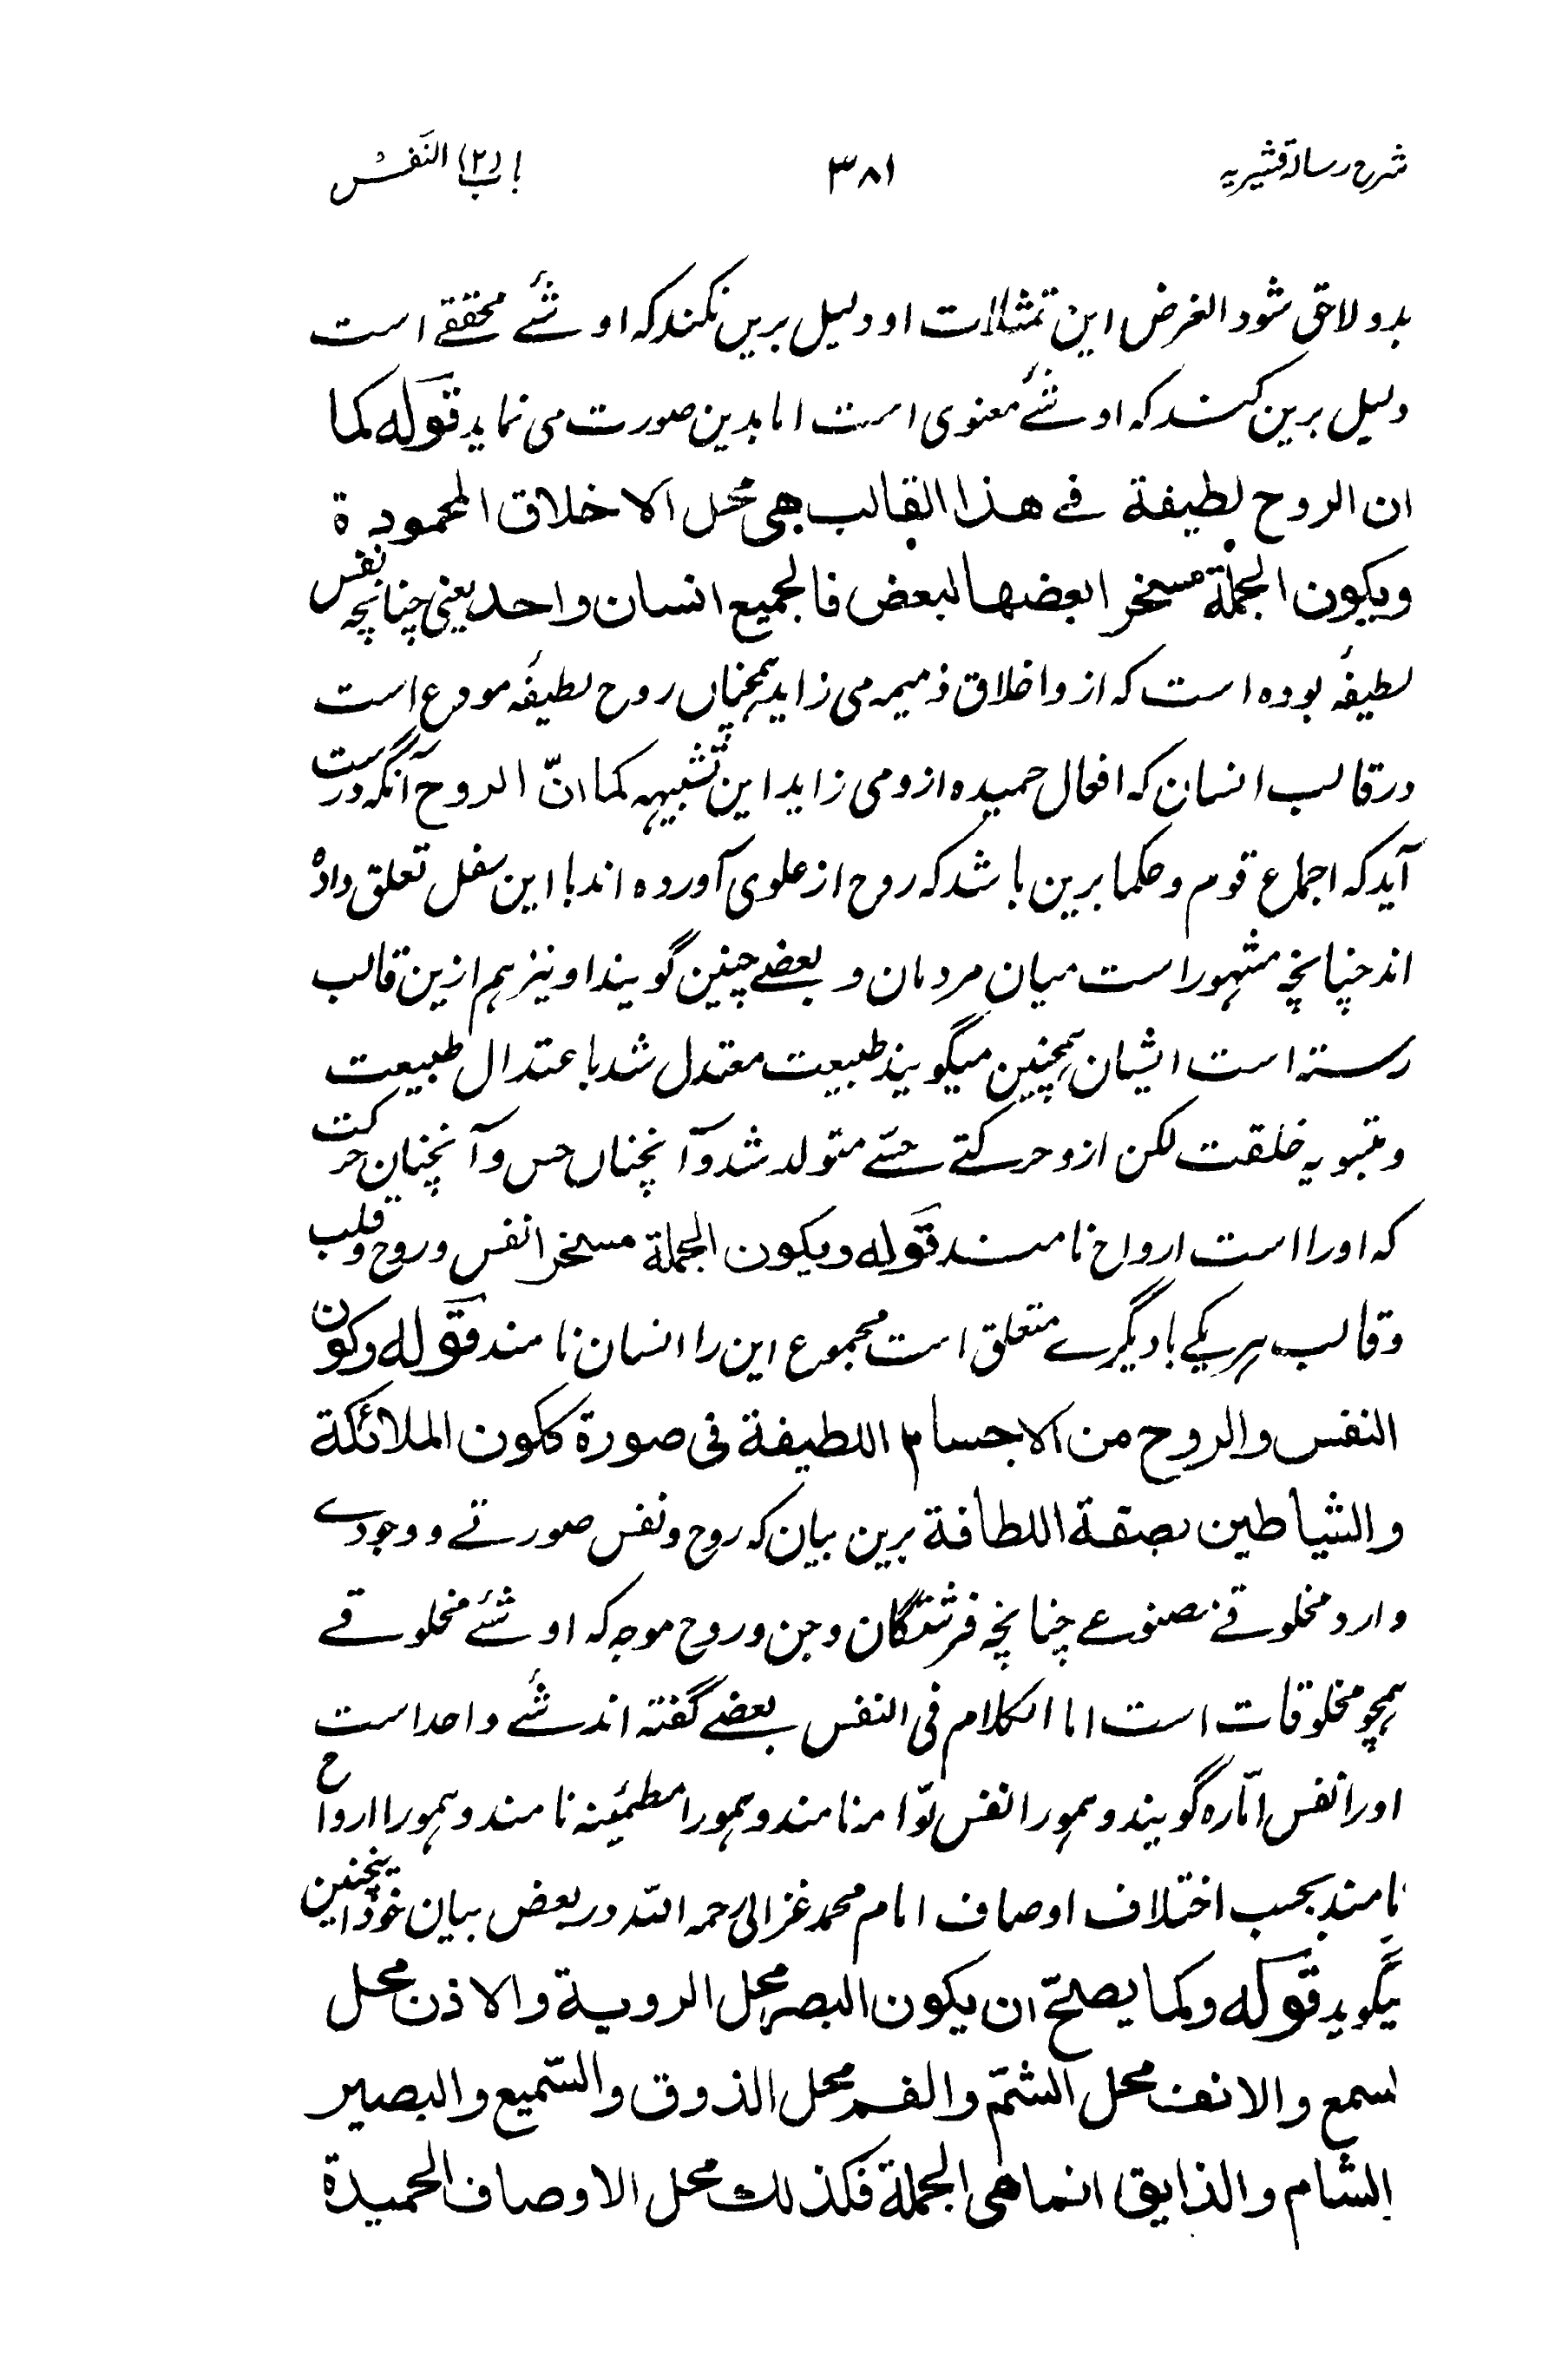 شرح رسالہ قشیریہ ۳۸۱ باب (۲) النَفسُ
بدو لاحق شود الغرض این تمثلات او دلیل بریں نکند کہ او شئے محققے است
دلیل برین کند کہ او شئے معنوی است اما بدین صورت می نماید قولہ کما
ان الروح لطیفة فے ھذا القالب ھی محل الاخلاق المحمودة
ویکون الجملة مسخرا بعضھا لبعض فالجمیع انسان واحد یعنی چنانچہ نفس
لطیفۂ بودہ است کہ ازو اخلاق ذمیمہ می زاید ہمچناں روح لطیفۂ مودع است
در قالب انسان کہ افعال حمیدہ ازو می زاید این تشبیہہ کما انّ الروح آنگہ درست
آید کہ اجماع قوم و حکما برین باشد کہ روح از علوی آوردہ اند با این سفل تعلق دادہ
اند چنانچہ مشہور است میان مردمان و بعضے چنین گویند او نیز ہم ازین قالب
رستہ است ایشان ہمچنین میگویند طبیعت معتدل شد باعتدال طبیعت
و تسویہ خلقت لکن ازو حرکتے حسّے متولد شد و آنچناں حس و آنچنان حرکت
کہ او را است ارواح نامند قولہ ویکون الجملة مسخرا نفس و روح و قلب
و قالب ہر یکے با دیگرے متعلق است مجموع این را انسان نامند قولہ وکون
النفس والروح من الاجسام اللطیفة فی صورة ککون الملائکة
والشیاطین بصفة اللطافة برین بیان کہ روح و نفس صورتے و وجودے
دارد مخلوقے مصنوعے چنانچہ فرشتگان و جن و روح موجہ کہ او شئے مخلوقے
ہمچو مخلوقات است اما الکلام فی النفس بعضے گفتہ اند شئے واحد است
او را نفس امّارہ گویند و ہمو را نفس لوّامہ نامند و ہمو را مطمئنہ نامند و ہمو را ارواح
نامند بحسب اختلاف اوصاف امام محمد غزالی رحمہ اللہ در بعض بیان خود اینچنین
میگوید قولہ وکما یصلحّ ان یکون البصر محل الرویة والاذن محل
لسمع والانف محل الشمّ والفم محل الذوق والسّمیع والبصیر
الشام والذایق انما ھی الجملة فکذلك محل الاوصاف الحمیدة